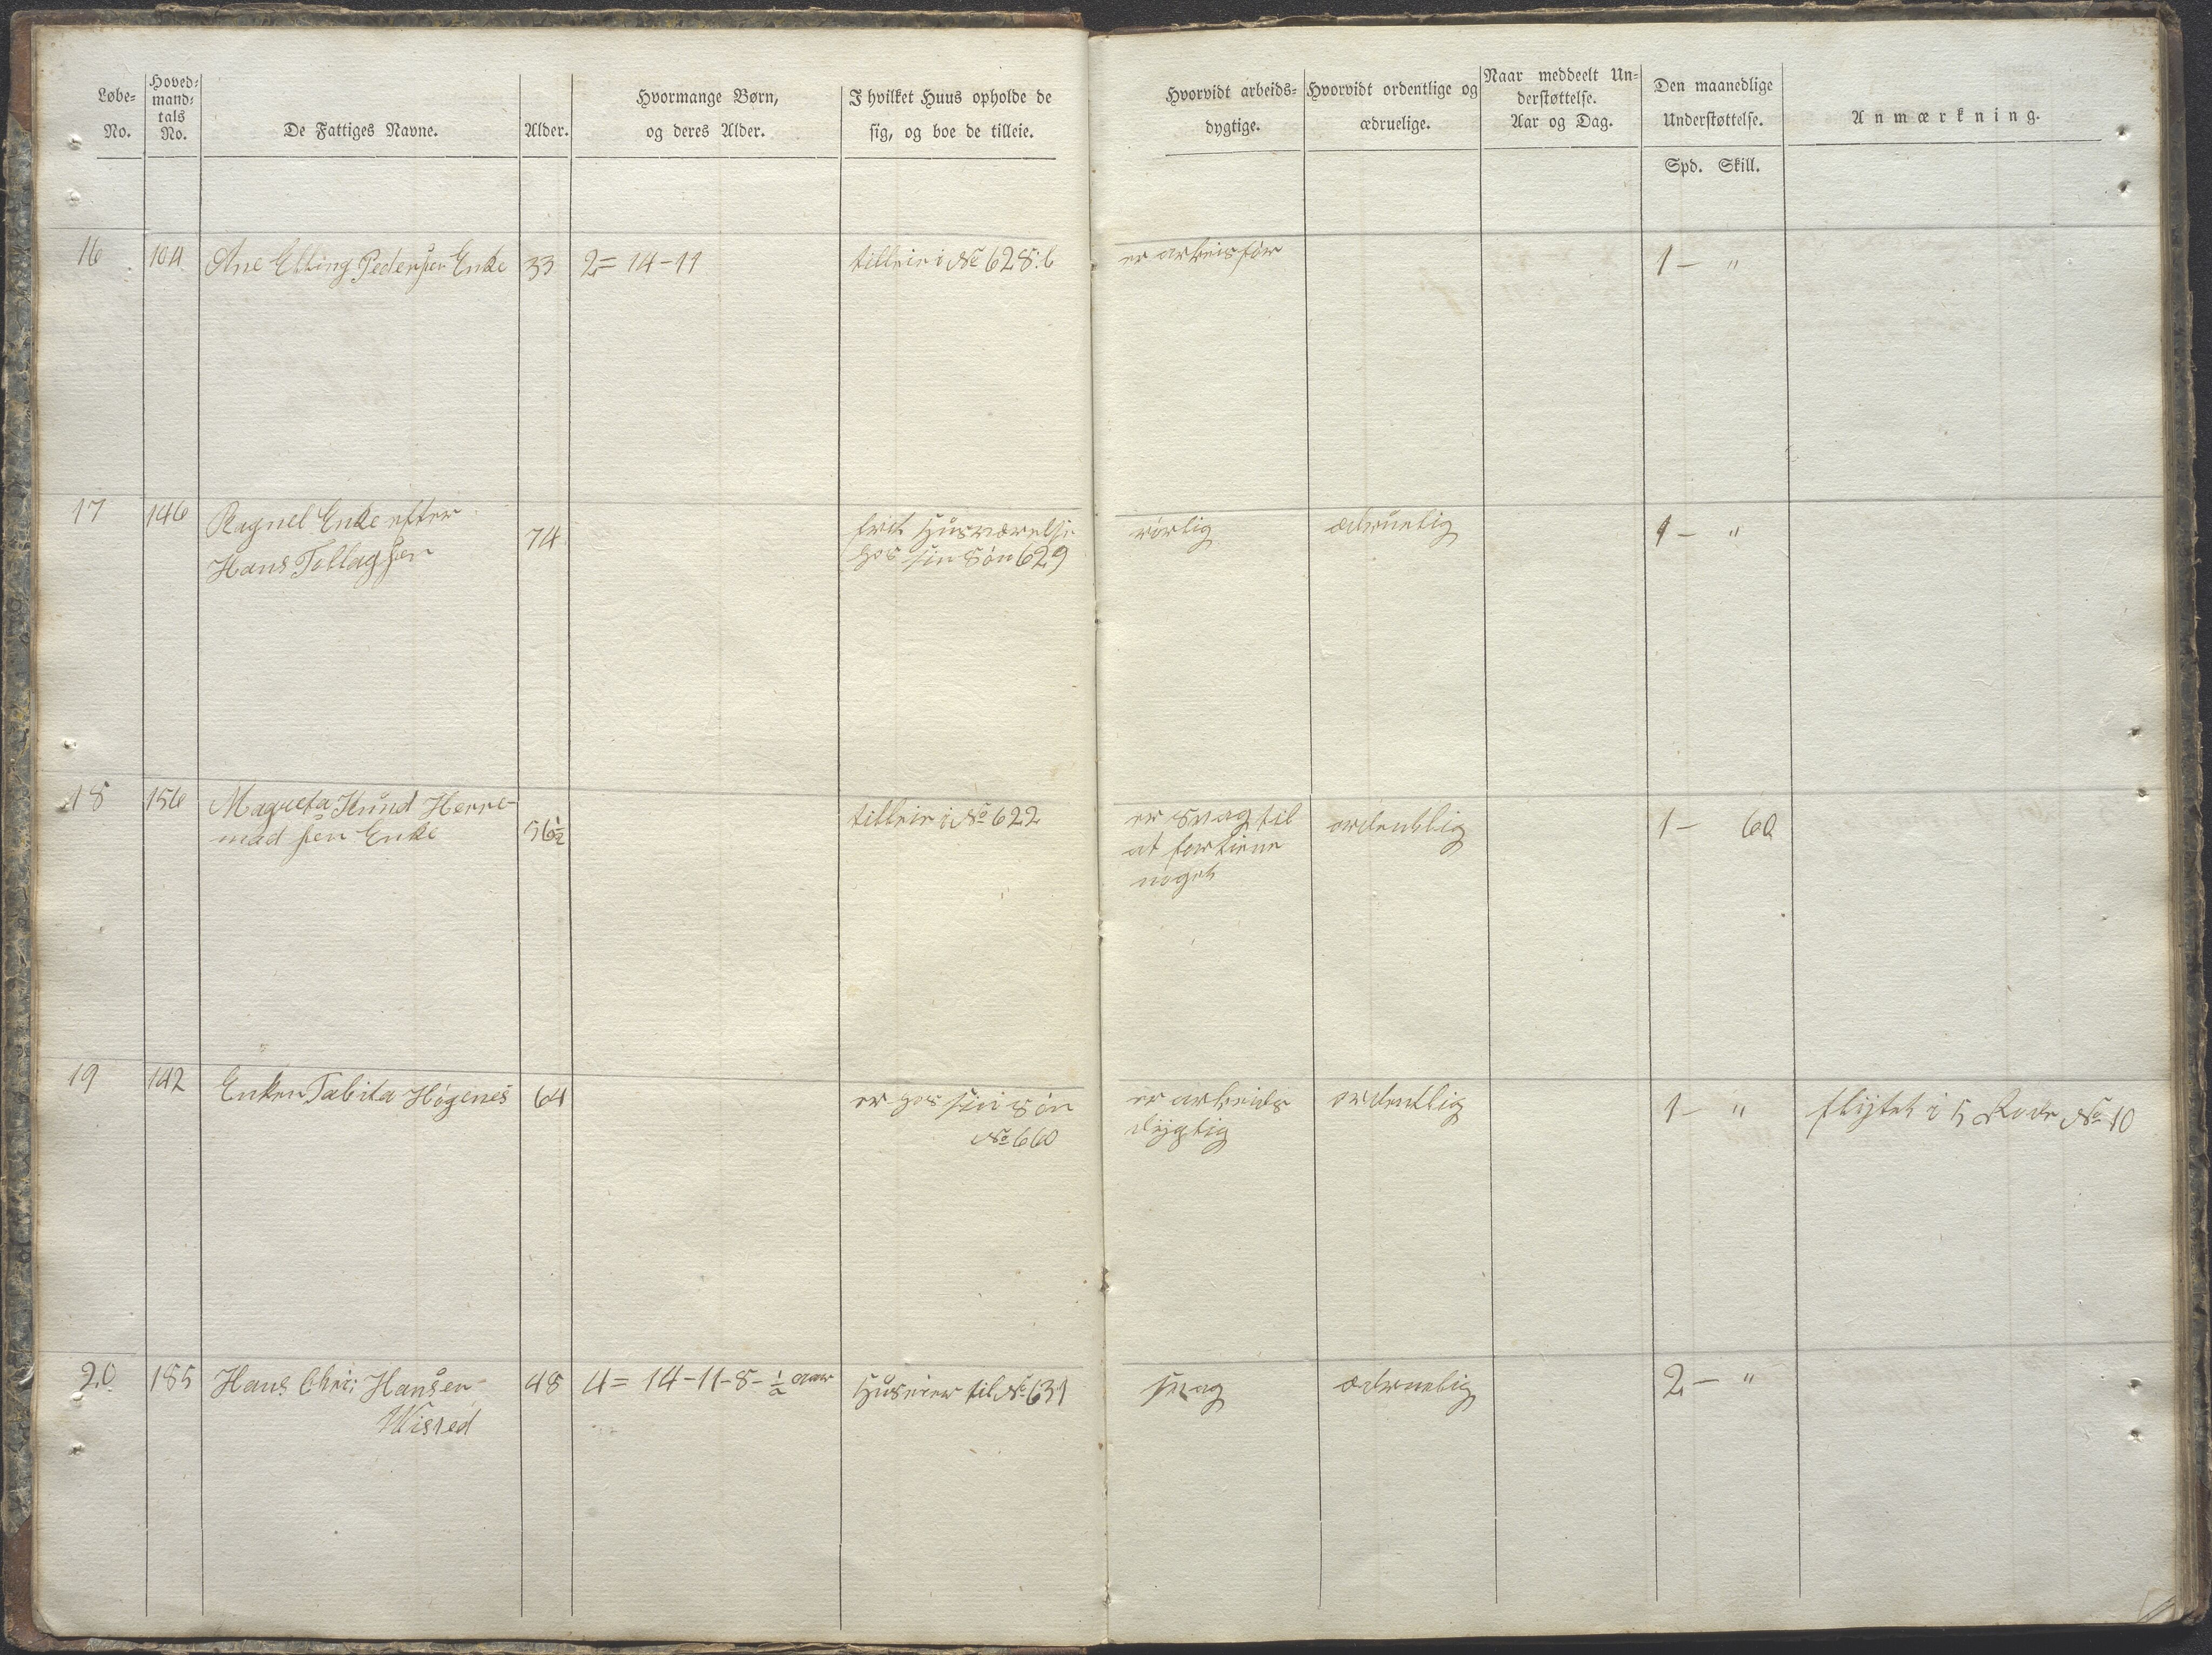 Løbe-
No.
Hoved-
mand-
tals
No.
De Fattiges Navne.
Alder.
Hvormange Børn,
og deres Alder.
I hvilket Huus opholde de
sig, og boe de tilleie.
Hvorvidt arbeids-
dygtige.
Hvorvidt ordentlige og
ædruelige.
Naar meddeelt Un-
derstøttelse.
Aar og Dag.
Den maanedlige
Understøttelse.
Spd. Skill.
Anmærkning.
16 104 Ane Elling Pedersen Enke 33 2 = 14-11 tilleie i No 628:b er arbeisfør 1 - "
17 146 Ragnel Enke efter
Hans Tollagsen
74
frit Husværelse
hos sin Søn 629
rørlig ædruelig 1 - "
18 156 Magreta Knud Herre-
mad sen Enke
56½
tilleie i No 622
er svag til
at fortiene
noget
ordentlig 1 - 60
19 142 Enken Tabita Høgenes 64
er hos sin Søn
No 660
er arbeids
dygtig
ordentlig 1 - " flyttet i 5 Rode No 10
20 185 Hans Chri: Hansen
Wisred
48 4 = 14-11-8-½ aar Huseier til No 631 svag ædruelig 2 - "